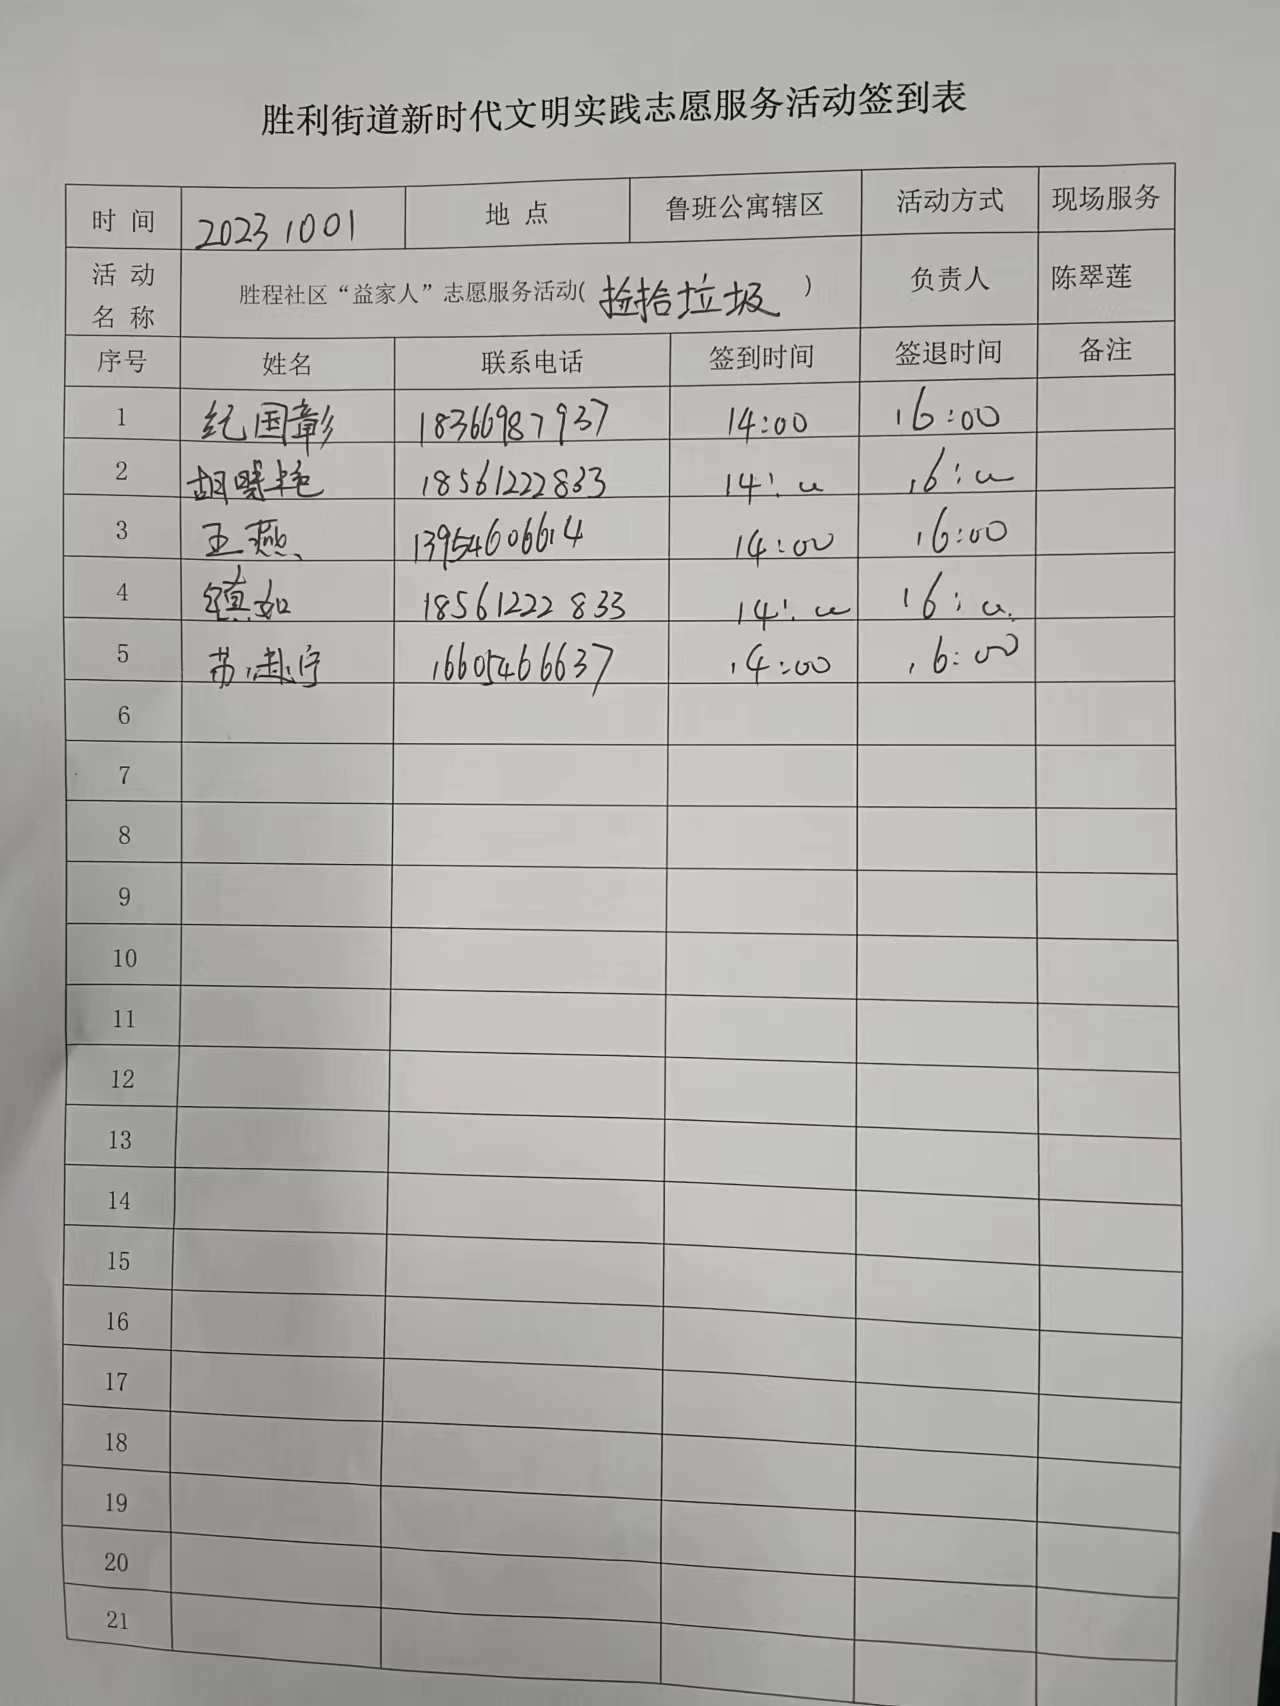 胜利街道新时代文明实践志愿服务活动签到表
时 间 20231001 地 点 鲁班公寓辖区 活动方式 现场服务
活 动 名 称 胜程社区“益家人”志愿服务活动( 捡拾垃圾 ) 负责人 陈翠莲
序号 姓名 联系电话 签到时间 签退时间 备注
1 纪国彰 18366987937 14:00 16:00
2 胡晓艳 18561222833 14: 16:
3 王燕 13954606614 14:00 16:00
4 18561222833 14: 16:
5 苏 宁 16605466637 14:00 16:00
6
7
8
9
10
11
12
13
14
15
16
17
18
19
20
21